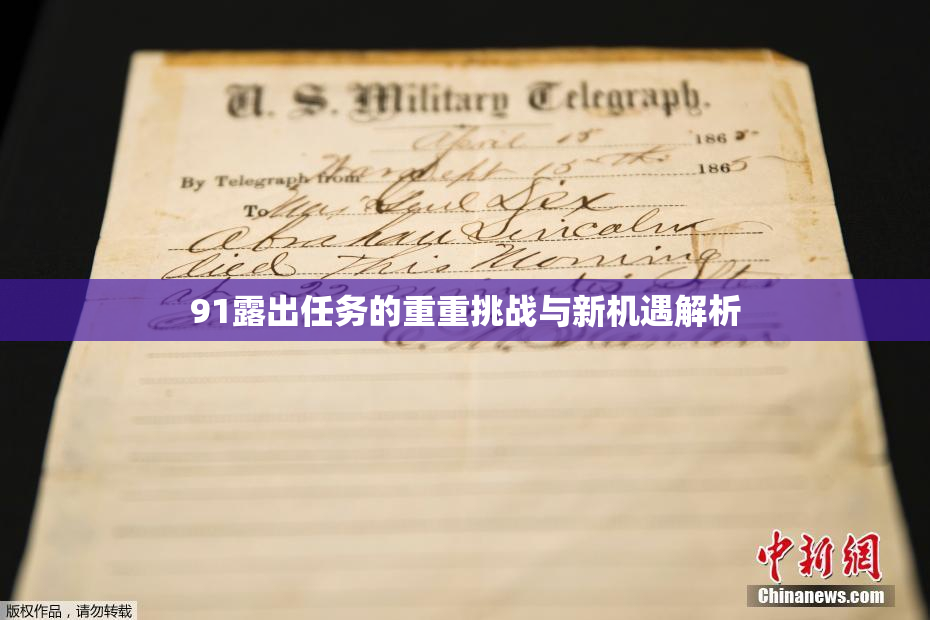 U. S. Military Telegraph.
April 15 1865
By Telegraph from War Dept 15th 1865
To Maj Genl Dix
Abraham Lincoln
died This Morning
at 22 minutes after
91露出任务的重重挑战与新机遇解析
中新網
Chinanews.com
版权作品，请勿转载